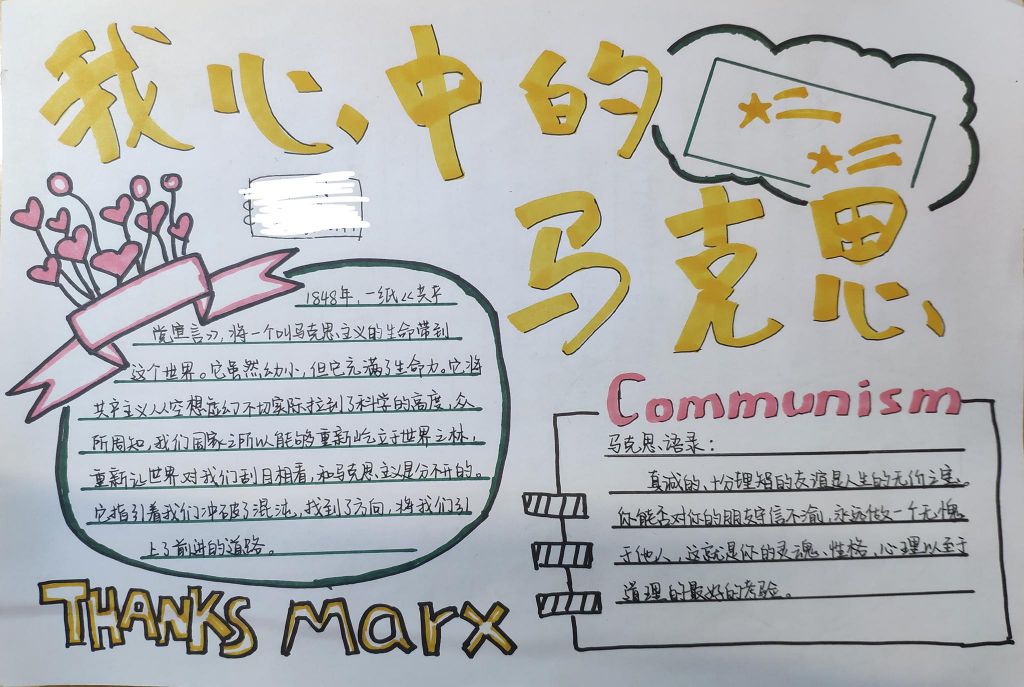 我心中的
马克思
1848年，一纸《共产
党宣言》，将一个叫马克思主义的生命带到
这个世界。它虽然幼小，但它充满了生命力。它将
共产主义从空想虚幻不切实际拉到了科学的高度，众
所周知，我们国家之所以能够重新屹立于世界之林，
重新让世界对我们刮目相看，和马克思主义是分不开的。
它指引着我们冲破了混沌，找到了方向，将我们引
上了前进的道路。
Communism
马克思语录：
真诚的、十分理智的友谊是人生的无价之宝。
你能否对你的朋友守信不渝，永远做一个无愧
于他人，这就是你的灵魂、性格、心理以至于
道理的最好的考验。
THANKS Marx